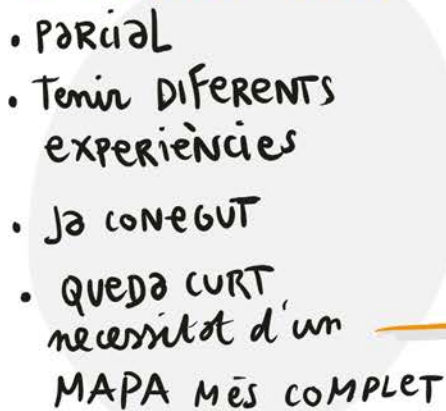 • PARCIAL
• Tenir DIFERENTS
experiències
• Ja CONEGUT
• QUEDA CURT
necessitat d'un
MAPA MÉS COMPLET